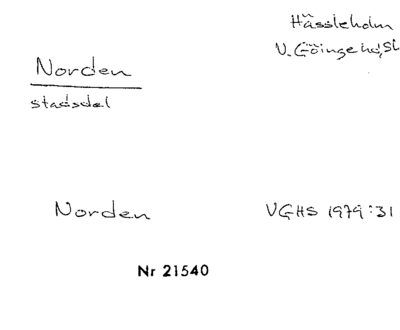 Hässleholm
V. Göinge hd, Sk
Norden
stadsdel
Norden VGHS 1979:31
Nr 21540